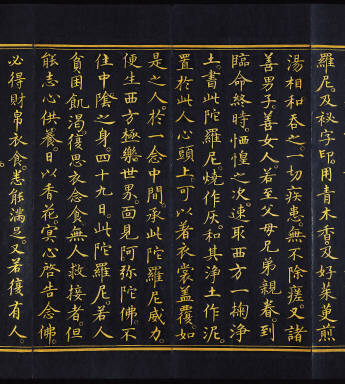 羅尼。及祕字印。用青木香。及好茱萸煎
湯相和吞之。一切疾患。無不除瘥。又諸
善男子。善女人。若至父母兄弟親眷。到
臨命終時。恓惶之次。速取西方一掬淨
土。書此陀羅尼。燒作灰。和其淨土作泥。
置於此人心頭上。可以著衣裳蓋覆。如
是之人。於一念中間。承此陀羅尼威力。
便生西方極樂世界。面見阿弥陀佛。不
住中陰之身。四十九日。此陀羅尼。若人
貧困飢渴。復思衣念食。無人救接者。但
能志心供養。日以香花。冥心啓告念佛。
必得財帛衣食。悉能滿足。又若復有人。